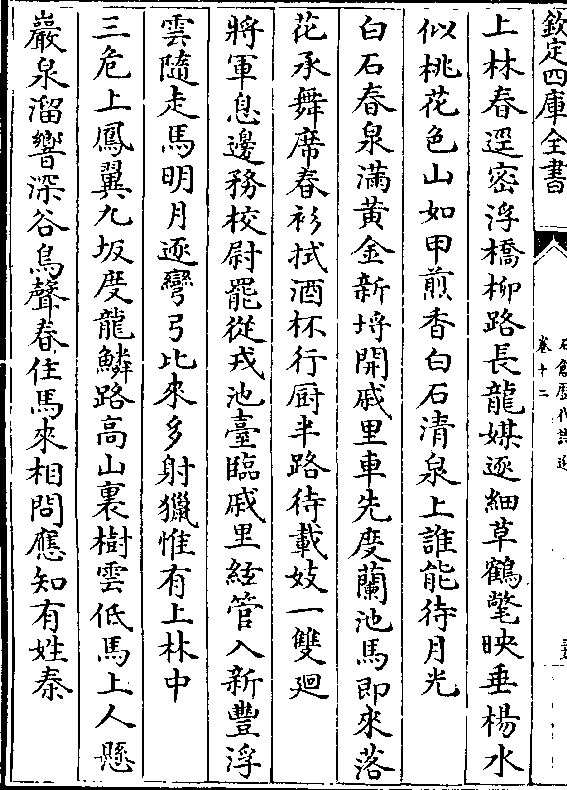 欽定四庫全書
石倉歴代詩選
卷十二
上林春逕密浮橋柳路長龍媒逐細草鶴氅映垂楊水
似桃花色山如甲煎香白石清泉上誰能待月光
白石春泉滿黄金新埒開戚里車先度蘭池馬即來落
花承舞席春衫拭酒杯行厨半路待載妓一雙廻
將軍息邊務校尉罷從戎池臺臨戚里絃管入新豐浮
雲隨走馬明月逐彎弓比來多射獵惟有上林中
三危上鳳翼九坂度龍鱗路高山裏樹雲低馬上人懸
巖泉溜響深谷鳥聲春住馬來相問應知有姓秦